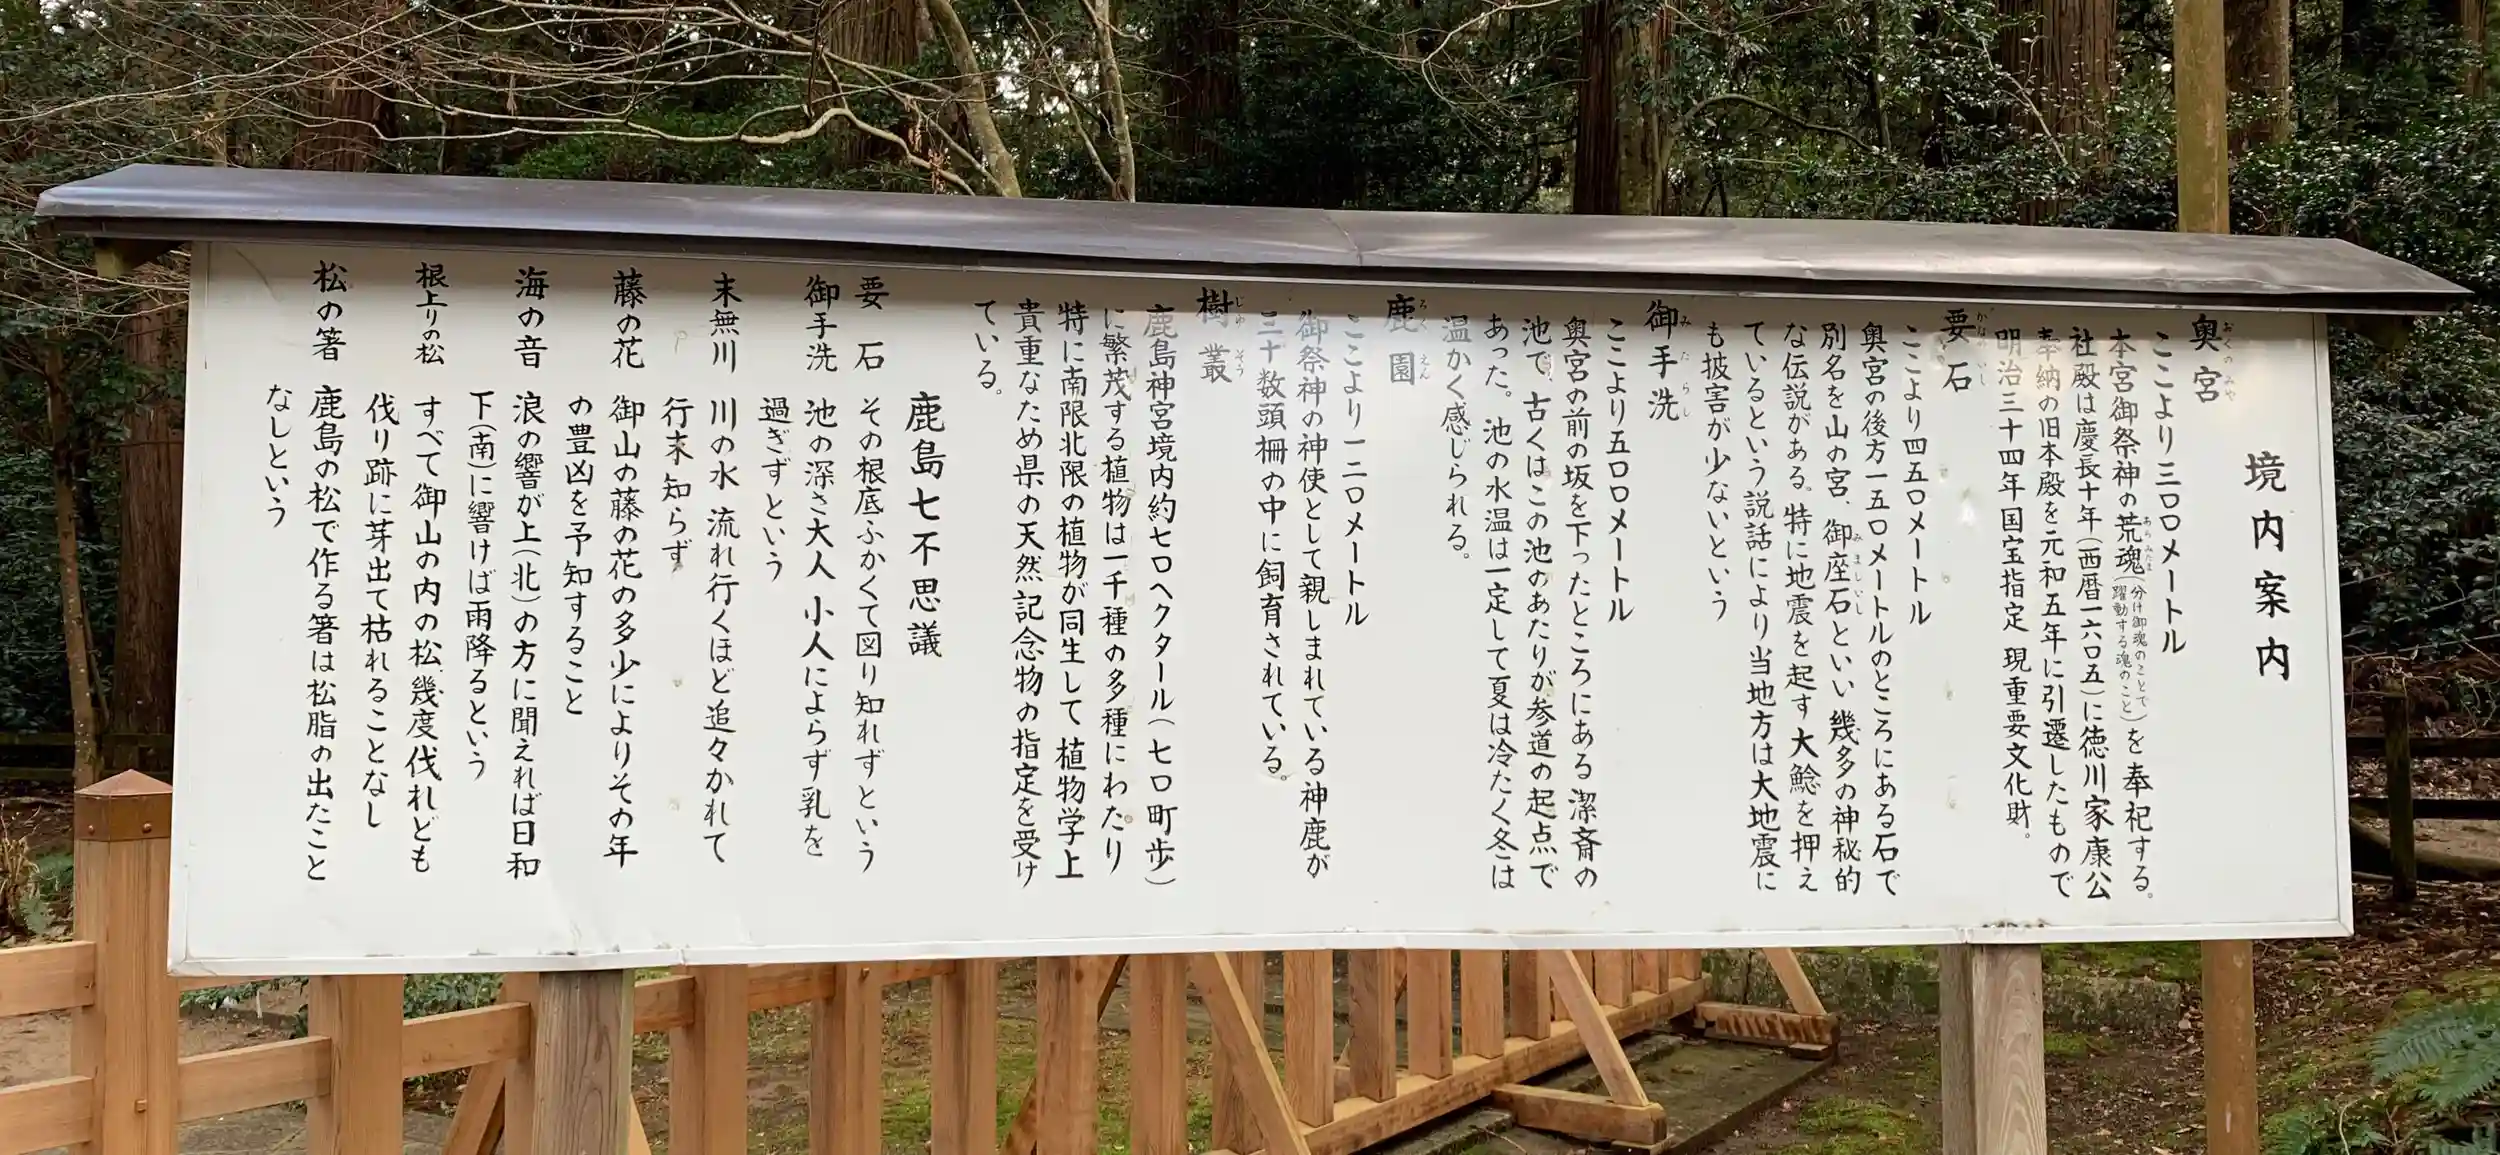 境内案内
奥宮
おくのみや
ここより三〇〇メートル
本宮御祭神の荒魂(分け御魂のことで躍動する魂のこと)を奉祀する。
あらみたま
社殿は慶長十年(西暦一六〇五)に徳川家康公
奉納の旧本殿を元和五年に引遷したもので
明治三十四年国宝指定 現重要文化財。
要石
かなめいし
ここより四五〇メートル
奥宮の後方一五〇メートルのところにある石で
別名を山の宮、御座石といい幾多の神秘的
みましいし
な伝説がある。特に地震を起す大鯰を押え
ているという説話により当地方は大地震に
も披害が少ないという
御手洗
みたらし
ここより五〇〇メートル
奥宮の前の坂を下ったところにある潔斎の
池で、古くはこの池のあたりが参道の起点で
あった。池の水温は一定して夏は冷たく冬は
温かく感じられる。
鹿園
ろくえん
ここより一二〇メートル
御祭神の神使として親しまれている神鹿が
三十数頭柵の中に飼育されている。
樹叢
じゅそう
鹿島神宮境内約七〇ヘクタール(七〇町歩)
に繁茂する植物は一千種の多種にわたり
特に南限北限の植物が同生して植物学上
貴重なため県の天然記念物の指定を受け
ている。
鹿島七不思議
要石 その根底ふかくて図り知れずという
御手洗 池の深さ大人 小人によらず乳を
過ぎずという
末無川 川の水 流れ行くほど追々かれて
行末知らず
藤の花 御山の藤の花の多少によりその年
の豊凶を予知すること
海の音 浪の響が上(北)の方に聞えれば日和
下(南)に響けば雨降るという
根上りの松 すべて御山の内の松、幾度伐れども
伐り跡に芽出て枯れることなし
松の箸 鹿島の松で作る箸は松脂の出たこと
なしという